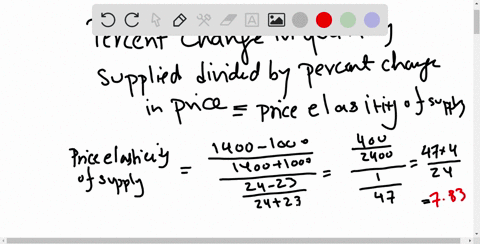 Percent Change in quantity
supplied divided by percent change
in price = price elasitity of supply
Price elasticity of supply = 1400-1000 / 1400+1000 / 24-23 / 24+23 = 400 / 2400 / 1 / 47 = 47×4 / 24
= 7.83